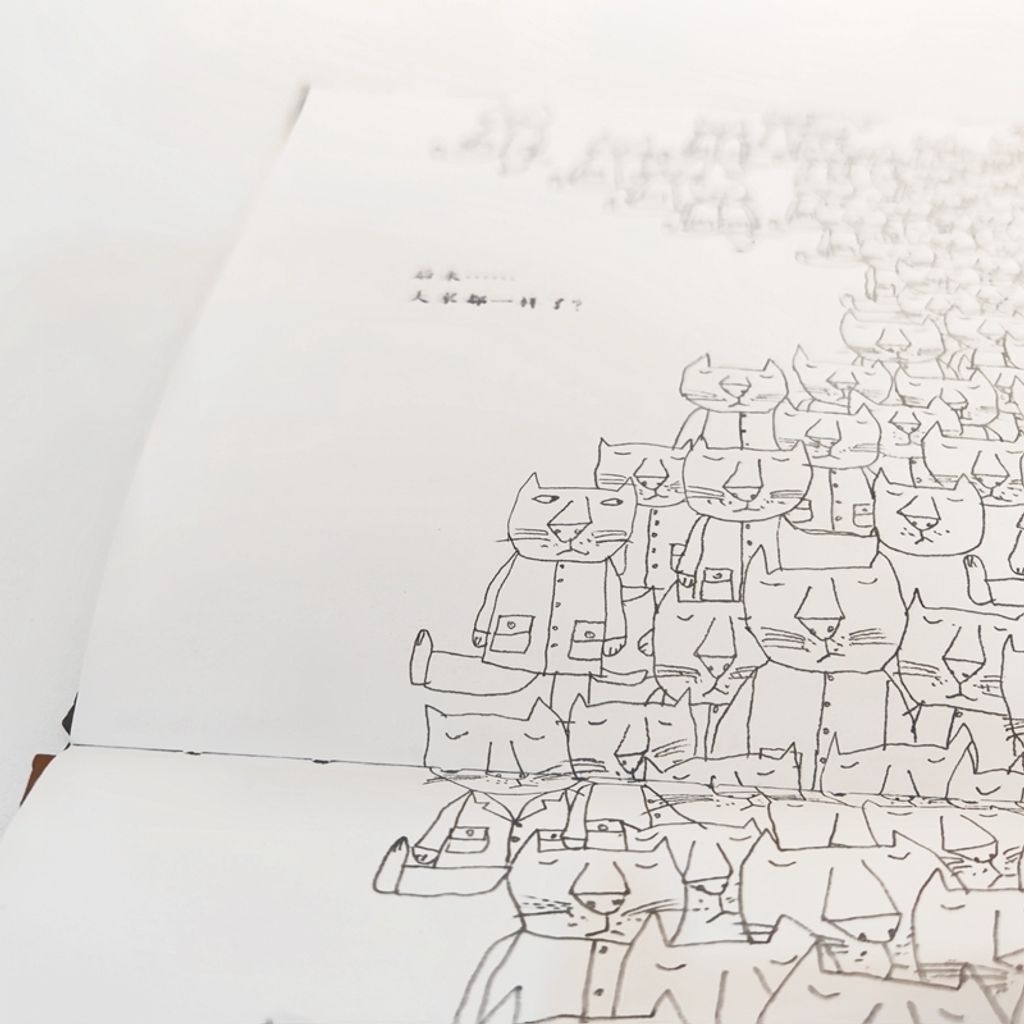 后来……
大家都一样了?